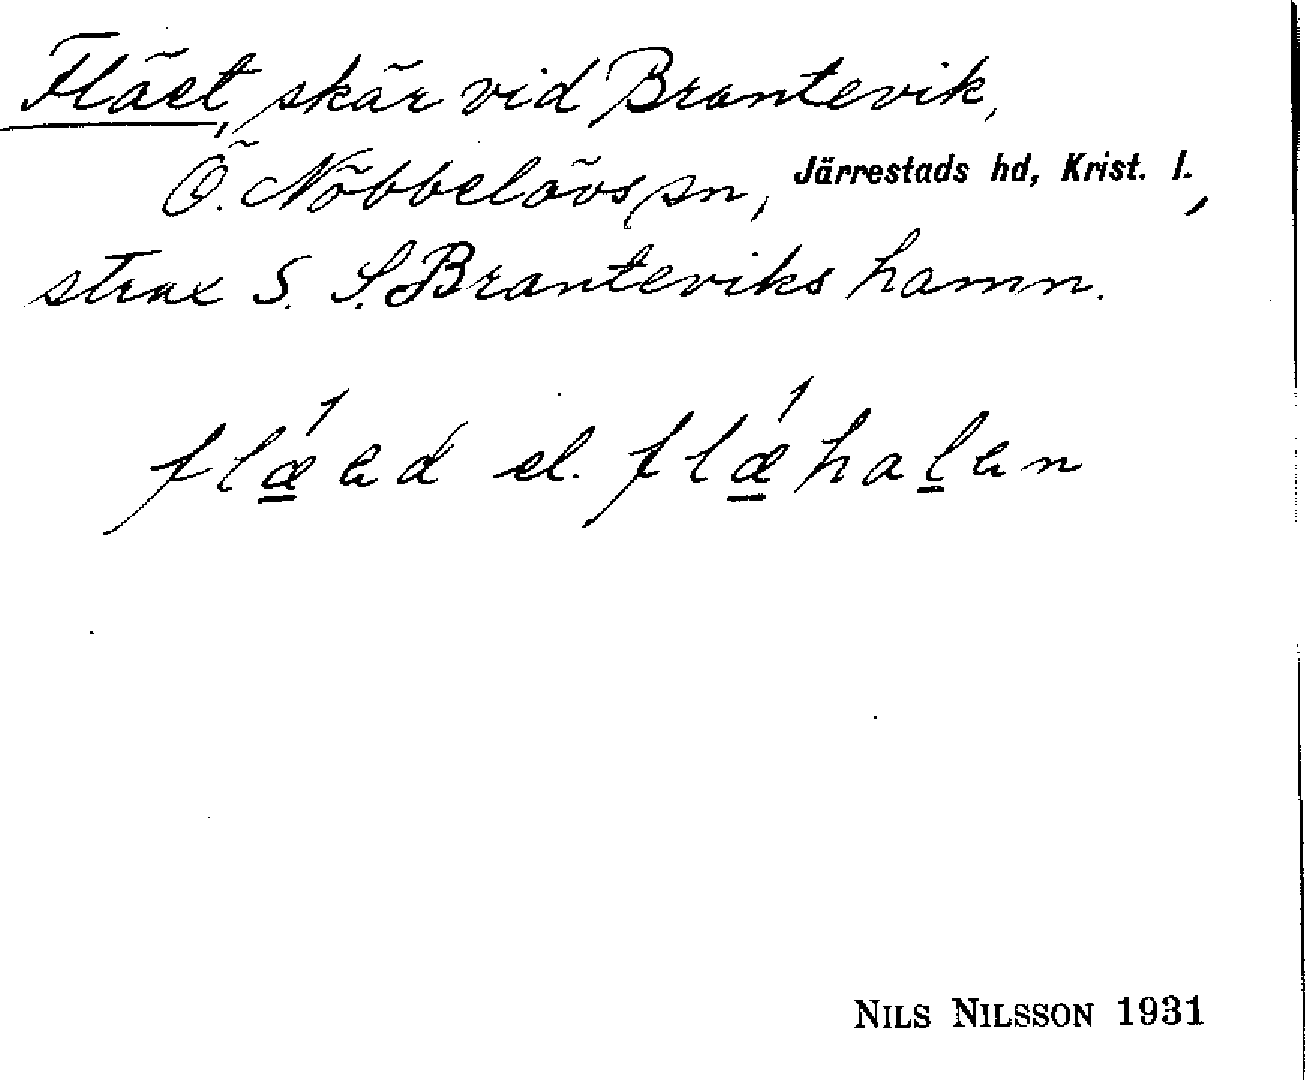 Fläet, skär vid Brantevik,
Ö. Nöbbelövs sn, Järrestads hd, Krist. l.,
strax S. S. Branteviks hamn.
flǽ̱ɐd el. flǽ̱haḻɐn
NILS NILSSON 1931